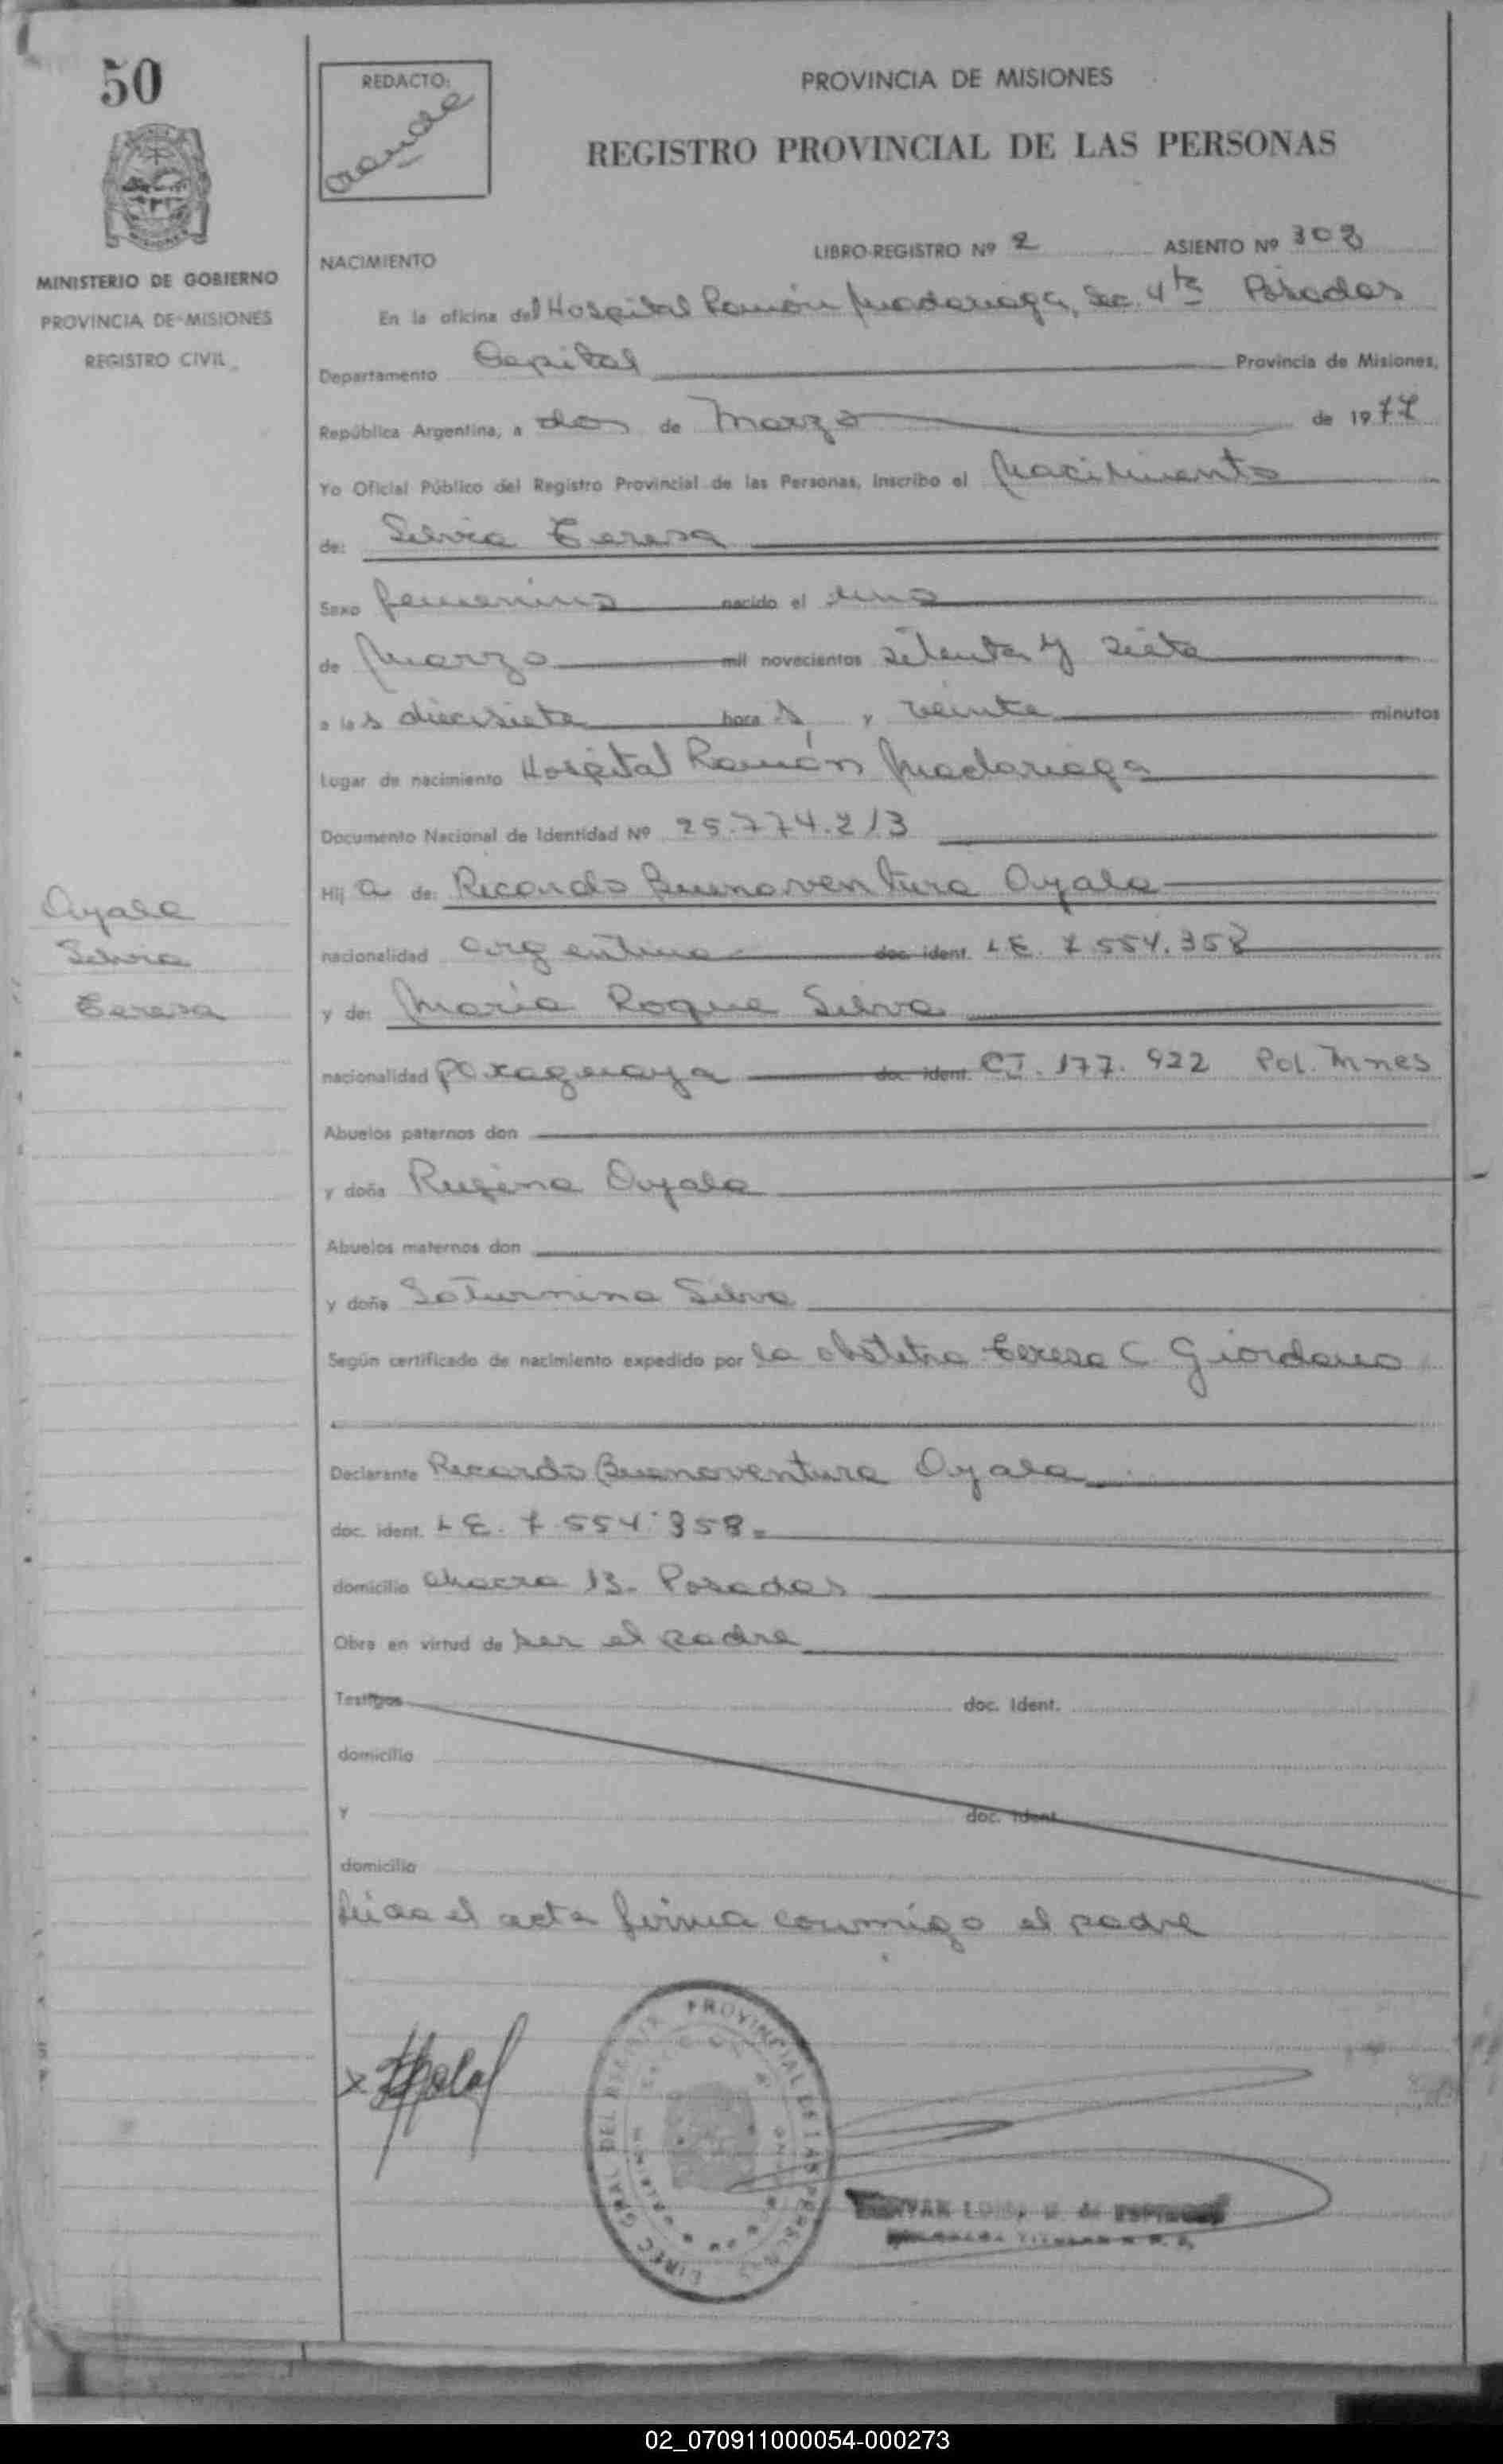 50
REDACTO:
PROVINCIA DE MISIONES
REGISTRO PROVINCIAL DE LAS PERSONAS
MINISTERIO DE GOBIERNO
PROVINCIA DE MISIONES
REGISTRO CIVIL
NACIMIENTO
LIBRO-REGISTRO Nº 2 ASIENTO Nº 308
En la oficina del Hospital Ramón Madariaga, Sec. 4ta Posadas
Departamento Capital Provincia de Misiones,
República Argentina, a dos de Marzo de 1977
Yo Oficial Público del Registro Provincial de las Personas, Inscribo el Nacimiento
de: Silvia Teresa
Sexo femenino nacido el uno
de Marzo mil novecientos setenta y siete
a las diecisiete horas y veinte minutos
Lugar de nacimiento Hospital Ramón Madariaga
Documento Nacional de Identidad Nº 25.774.213
Hija de: Ricardo Buenaventura Ayala
nacionalidad argentina doc. ident. LE. 7.554.358
y de: María Roque Silva
nacionalidad paraguaya doc. ident. CI. 177.922 Pol. Mnes
Abuelos paternos don
y doña Rufina Ayala
Abuelos maternos don
y doña Saturnina Silva
Según certificado de nacimiento expedido por la obstetra Teresa C Giordano
Declarante Ricardo Buenaventura Ayala
doc. ident. LE. 7.554.358
domicilio chacra 13- Posadas
Obra en virtud de ser el padre
Testigos doc. ident.
domicilio
y doc. ident.
domicilio
Leida el acta firma conmigo el padre
Ayala
Silvia
Teresa
02_070911000054-000273